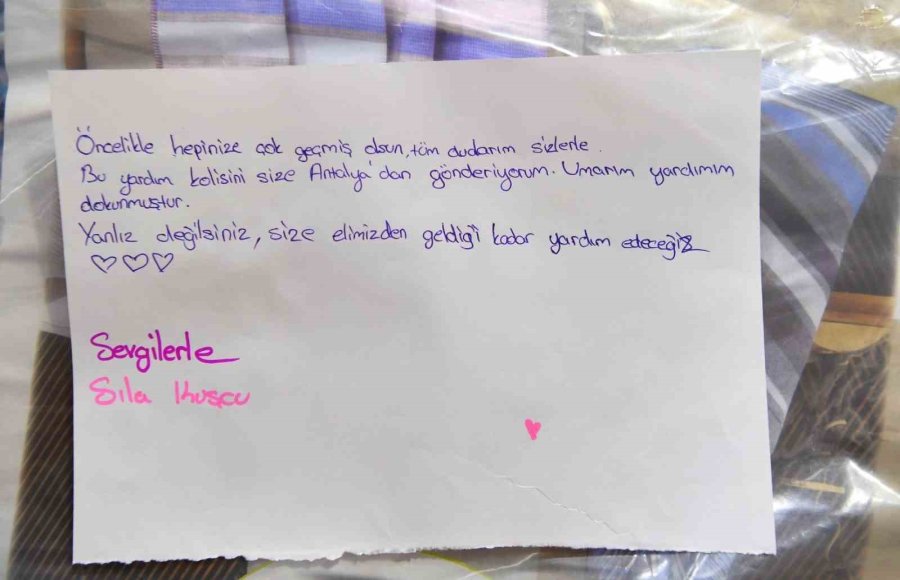 Öncelikle hepinize çok geçmiş olsun, tüm dudarım sizlerle.
Bu yardım kolisini size Antalya'dan gönderiyorum. Umarım yardımım
dokunmuştur.
Yanlız değilsiniz, size elimizden geldiği kadar yardım edeceğiz
♡♡♡
Sevgilerle
Sıla Kuşcu